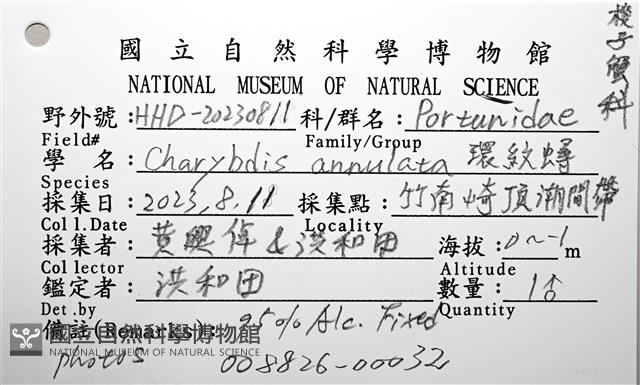 梭子蟹科
國立自然科學博物館
NATIONAL MUSEUM OF NATURAL SCIENCE
野外號: HHD-20230811 科/群名: Portunidae
Field# Family/Group
學 名: Charybdis annulata 環紋蟳
Species
採集日: 2023.8.11 採集點: 竹南崎頂潮間帶
Col l.Date Locality
採集者: 黃興倬 & 洪和田 海拔: 0~-1 m
Col lector Altitude
鑑定者: 洪和田 數量: 1♂
Det .by Quantity
備註(Remarks): 95% Alc. Fixed
國立自然科學博物館
NATIONAL MUSEUM OF NATURAL SCIENCE
photos 008826-00032